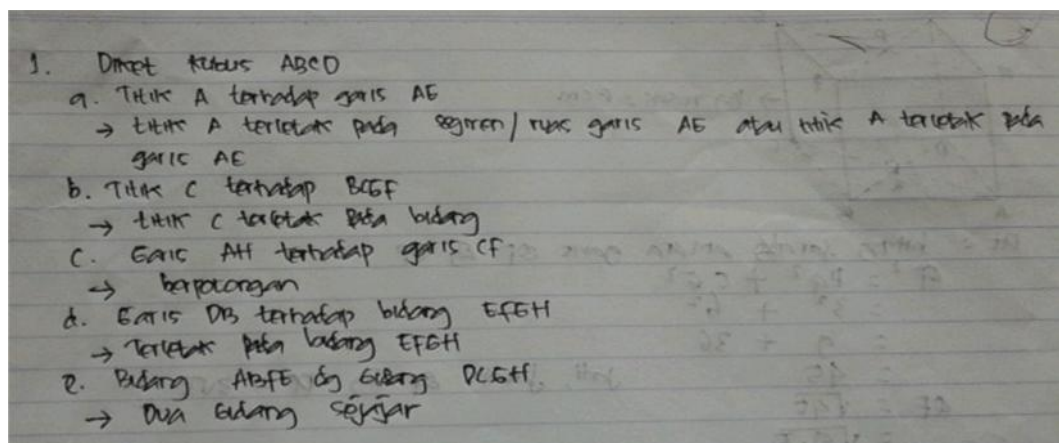 1. Diket kubus ABCD
a. Titik A terhadap garis AE
→ titik A terletak pada segmen / ruas garis AE atau titik A terletak pada
garis AE
b. Titik C terhadap BCGF
→ titik C terletak pada bidang
c. Garis AH terhadap garis CF
→ berpotongan
d. Garis DB terhadap bidang EFGH
→ Terletak pada bidang EFGH
e. Bidang ABFE dg bidang DCGH
→ Dua bidang sejajar